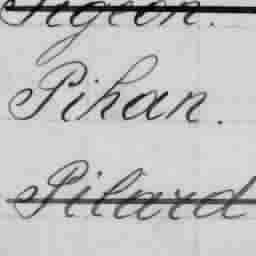 Pigeon.
Pihan.
Pilard